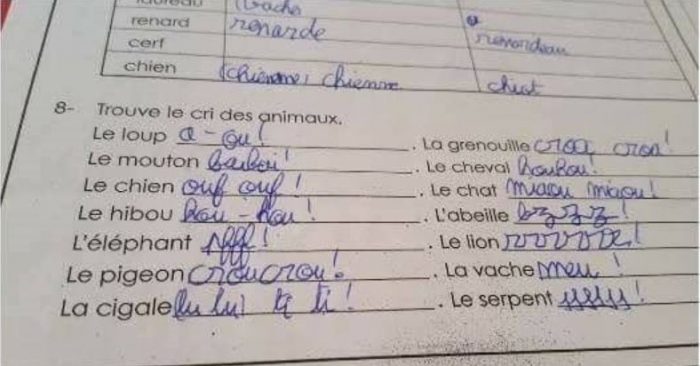 taureau vache
renard renarde renardeau
cerf
chien chienne chiot
8- Trouve le cri des animaux.
Le loup a-ou! . La grenouille croa, croa!
Le mouton . Le cheval houhou!
Le chien ouf ouf! . Le chat miaou miaou!
Le hibou hou-hou! . L'abeille bzzz!
L'éléphant pfff! . Le lion
Le pigeon croucrou! . La vache meu!
La cigale . Le serpent